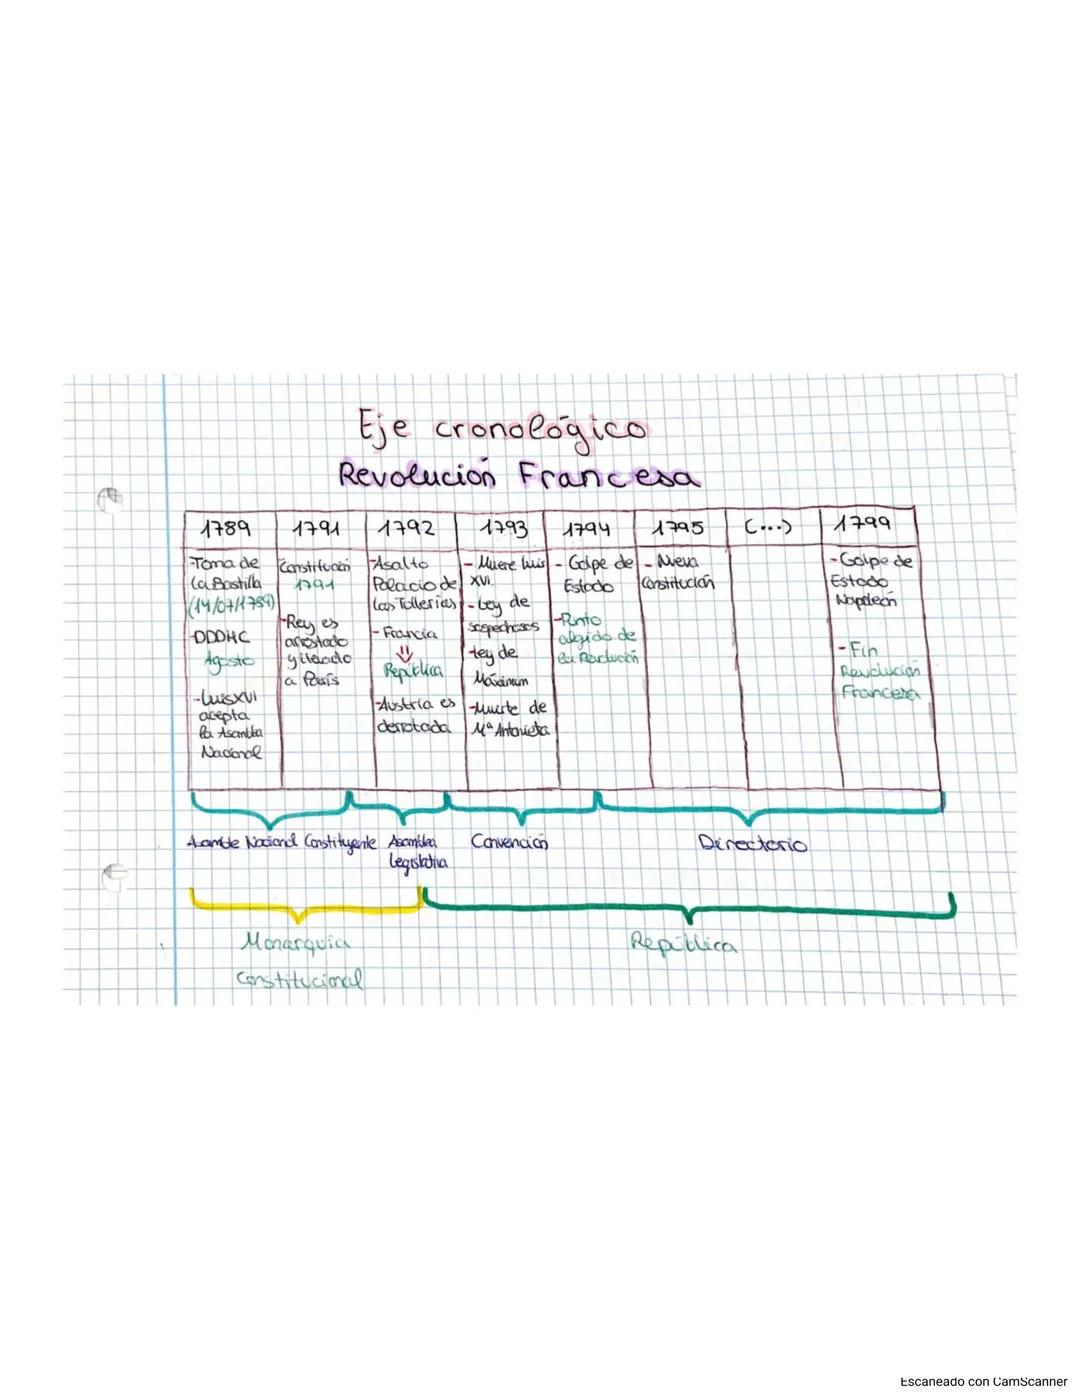 Eje cronológico
Revolución Francesa
1789
1791
1792
1793
1794
1795
(...)
1799
-Toma de
la Bastilla
(14/07/1789)
-DDDHC
Agosto
-Luis XVI
acepta
la Asamblea
Nacional
Constitución
1791
-Rey es
arrestado
y llevado
a París
-Asalto
Palacio de
las Tullerías
- Francia
⇓
República
-Austria es
derrotada
- Muere Luis
XVI.
-Ley de
sospechosos
-Ley de
Máximum
-Muerte de
Mª Antonieta
- Golpe de
Estado
-Punto
álgido de
la Revolución
- Nueva
Constitución
-Golpe de
Estado
Napoleón
-Fin
Revolución
Francesa
Asamble Nacional Constituyente
Asamblea
Legislativa
Convención
Directorio
Monarquia
Constitucional
República
Escaneado con CamScanner